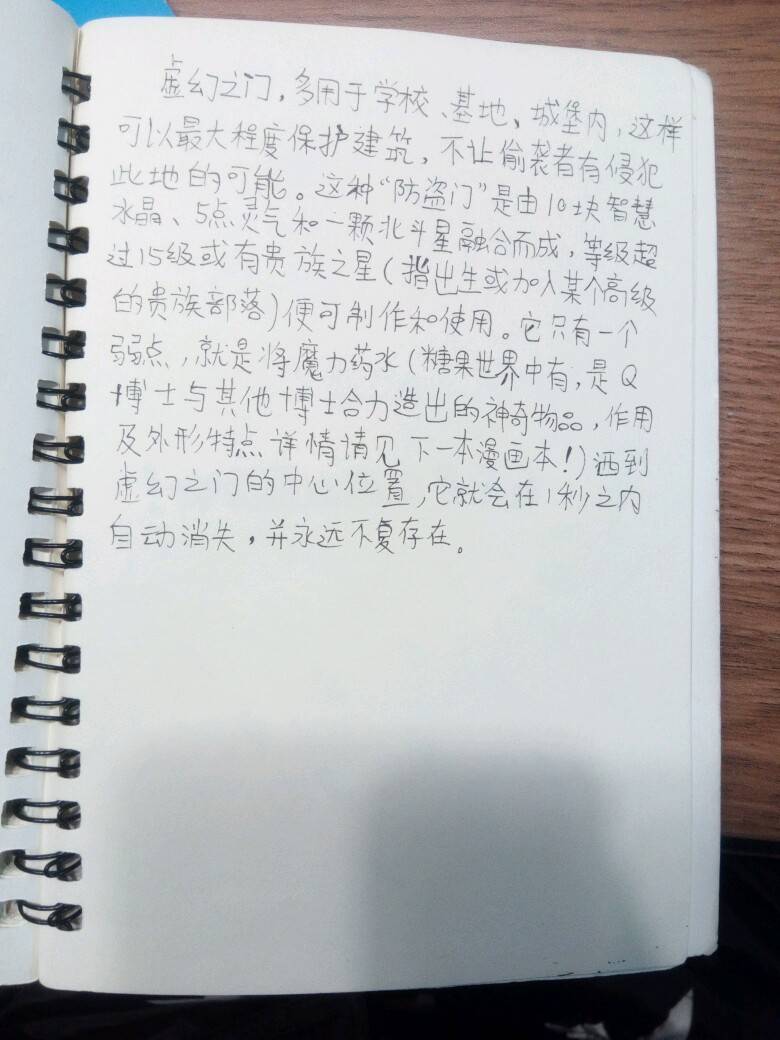 虚幻之门，多用于学校、基地、城堡内，这样
可以最大程度保护建筑，不让偷袭者有侵犯
此地的可能。这种“防盗门”是由10块智慧
水晶、5点灵气和一颗北斗星融合而成，等级超
过15级或有贵族之星（指出生或加入某个高级
的贵族部落）便可制作和使用。它只有一个
弱点，就是将魔力药水（糖果世界中有，是Q
博士与其他博士合力造出的神奇物品，作用
及外形特点详情请见下一本漫画本！）洒到
虚幻之门的中心位置，它就会在1秒之内
自动消失，并永远不复存在。